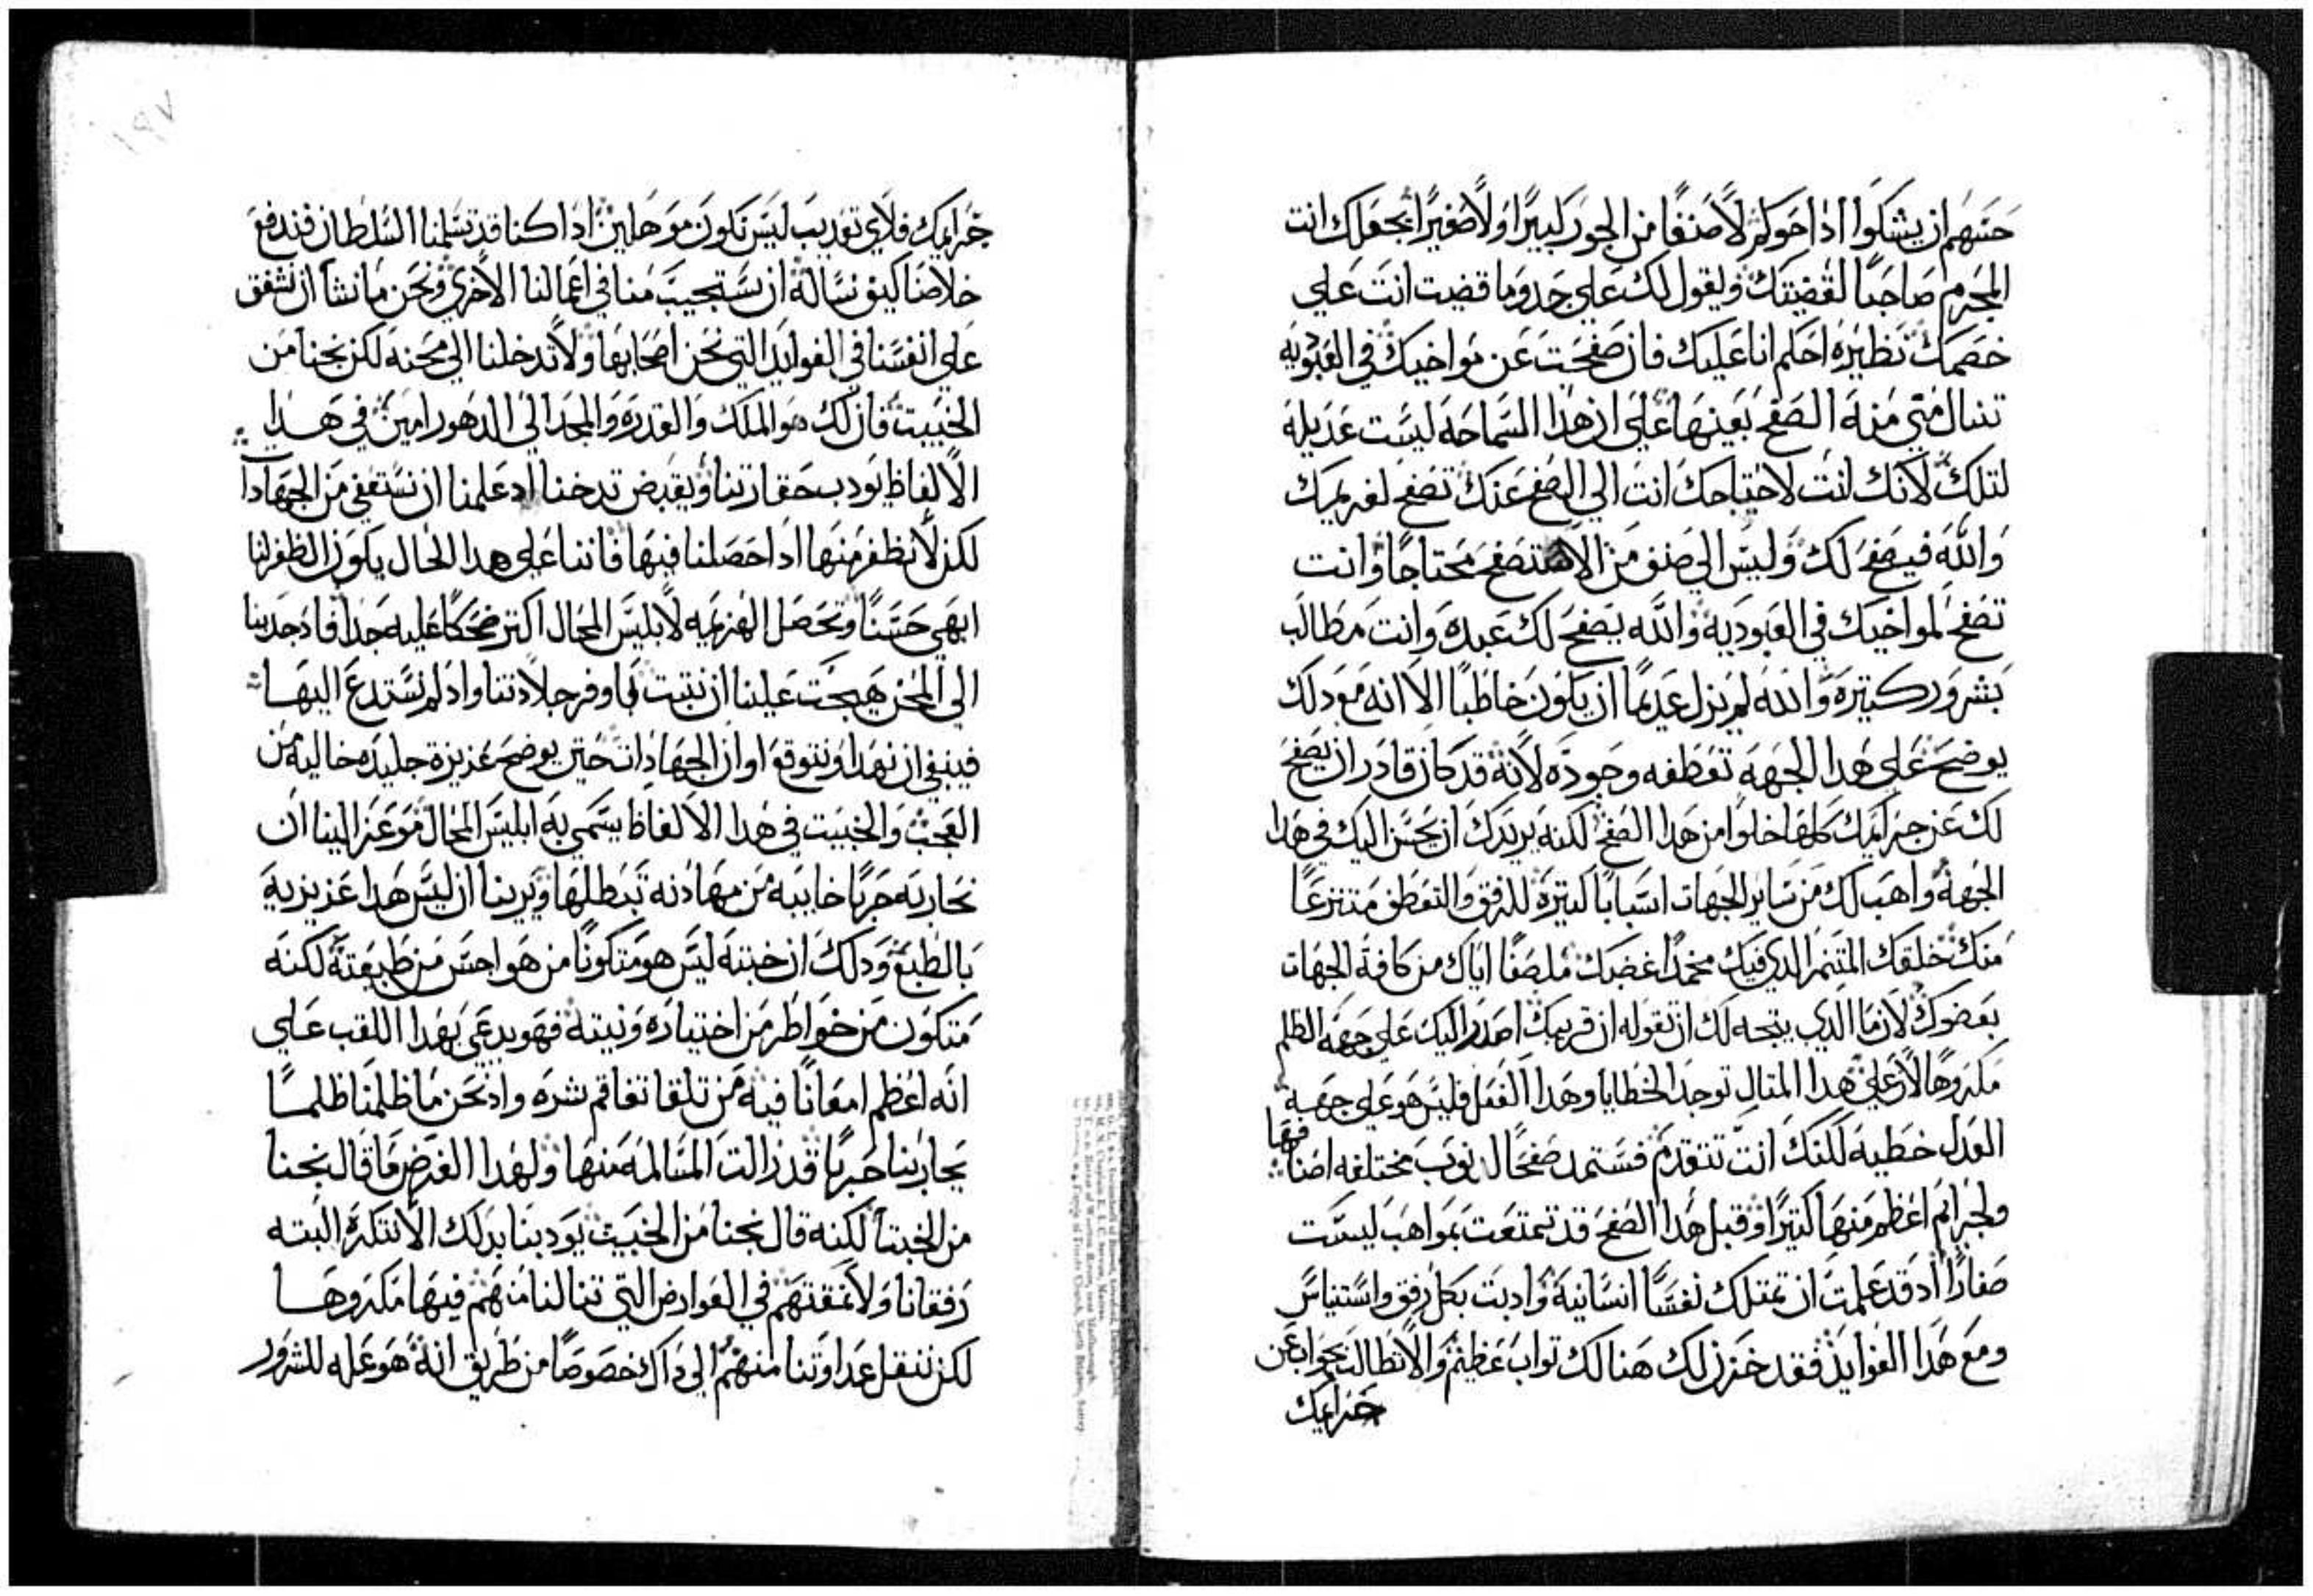 حسهم ان يشكوا اذا حوكم لا صنفا من الجور كبيرا ولا صغيرا بجعلك انت
المجرم صاحبا لقضيتك ويقول لك علي حدوما قضت انت علي
خصمك نظيره احكم انا عليك فان صفحت عن مواخيك في العبوديه
تنال مني منه الصفح بعينها علي ان هذا السماحه ليست عديله
لتلك لانك انت لاحتياجك انت الي الصفح عنك تصفح لغريمك
والله فيصفح لك وليس الي صنف من الاصناف محتاجا وانت
تصفح لمواخيك في العبوديه والله يصفح لك عبده وانت مطالب
بشرور كتيره والله لم يزل عديما ان يكون خاطيا الا انه مع دلك
يوضح علي هدا الجهه تعطفه وجوده لانه قد كان قادر ان يصفح
لك عن جرايمك كلها خلوا من هدا الصفح لكنه يريدك ان يحسن اليك في هدا
الجهه واهب لك من ساير الجهات اسبابا كتيره للرفق والتعطف منتزعا
منك خلقك المتنمر الدي فيك مخمدا غضبك ملصقا اياك من كافة الجهات
بعضوك لان ما الدي يتجه لك ان تقوله ان قريبك اصدر اليك علي جهه الظلم
مكروها لان علي هدا المتال توجد الخطايا وهدا الفعل فليس هو علي جهه
العدل خطيه لكنك انت تتقدم فستمد صفحا لدنوب مختلفه اصنافها
ولجرايم اعظم منها كتيرا وقبل هدا الصفح قد تمتعت بمواهب ليست
صغارا اد قد علمت ان تمتلك نفسا انسانية وادبت بكل رفق واستيناس
ومع هدا الفوايد فقد خزن لك هنالك تواب عظيم والا تطالب بجواب عن
جرايمك
جرايمك فلاي تعديب ليس نكون موهلين ادا كنا قد تسلمنا السلطان فندفع
خلاصنا كيف نساله ان يستجيب منا في اعمالنا الاخري ونحن ما نشا ان نشفق
علي انفسنا في الفوايد التي نحن اصحابها ولا تدخلنا الي محنه لكن نجنا من
الخبيت فان لك هو الملك والقدره والمجد الي الدهور امين في هدا
الالفاظ يودب حقارتنا ويقبض تدخنا اد علمنا ان نستعفي من الجهاد
لكن لا نظفر منها ادا حصلنا فيها فاننا علي هدا الحال يكون الظفر لنا
ابهي حسنا وتحصل الهزيمه لابليس المحال اكتر ضحكا عليه جدا فاد جدبنا
الي المحن هيجت علينا ان نتبت بها وفر جلادتنا واد لم نستدع اليها
فينبغي ان نهدا ونتوقع اوان الجهادات حتي يوضح عزيزة جليده خاليه من
العجب والخبيت في هدا الالفاظ يسمي به ابليس المحال موعز الينا ان
نحاربه حربا خايبه من مهادنه تبطلها ويرينا ان ليس هدا عزيزيه
بالطبع ودلك ان خبته ليس هو متكونا من هواجس من طبيعته لكنه
متكون من خواطر من اختياره ونيته فهو يدعي بهدا اللقب علي
انه اعظم امعانا فيه من تلقا تفاقم شره واد نحن ما ظلمنا ظلما
يحاربنا حربا قد زالت المسالمه منها ولهدا الغرض ما قال نجنا
من الخبتا لكنه قال نجنا من الخبيت يودبنا بدلك الا نتكره البته
رفقانا ولا نمقتهم في العوارض التي تنالنا منهم فيها مكروها
لكن ننقل عداوتنا منهم الي داك خصوصا من طريق انه هو عله للشرور